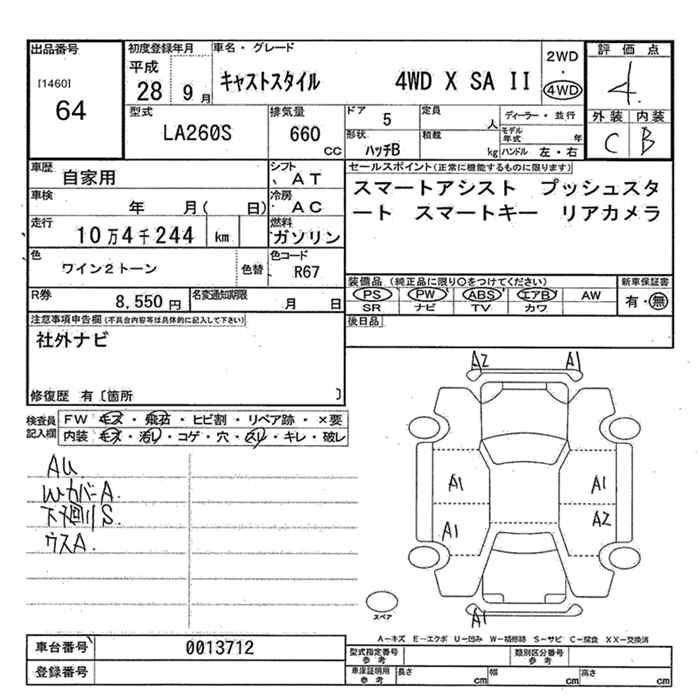 出品番号 初度登録年月 車名・グレード 2WD 評価点
[1460] 平成
64 28 9月 キャストスタイル 4WD X SA II ・ 4WD 4.
型式 排気量 ドア 5 定員 人 ディーラー・並行 外装 内装
LA260S 660 CC 形状 ハッチB 積載 kg モデル年式 年 C B
ハンドル 左・右
車歴 自家用 シフト AT セールスポイント(正常に機能するものに限ります)
車検 年 月( 日) 冷房 AC スマートアシスト プッシュスタ
走行 10万4千244 km 燃料 ガソリン ート スマートキー リアカメラ
色 ワイン2トーン 色替 色コード R67
装備品 (純正品に限り○をつけてください) 新車保証書
R券 8,550円 名変通知期限 月 日 PS PW ABS エアB AW 有・無
SR ナビ TV カワ
注意事項申告欄(不具合内容等は具体的に記入して下さい) 後日品
社外ナビ
修復歴 有〔箇所 〕
検査員記入欄 FW キズ・飛石・ヒビ割・リペア跡・×要
内装 キズ・汚れ・コゲ・穴・スリ・キレ・破レ
A2 A1
AU.
Wカバー A. A1 A1
下廻り S. A1 A2
ウス A.
スペア A1
A-キズ E-エクボ U-凹み W-補修跡 S-サビ C-腐食 XX-交換済
車台番号 0013712 型式指定番号 参考 類別区分番号 参考
登録番号 車庫証明用 参考 長さ cm 幅 cm 高さ cm